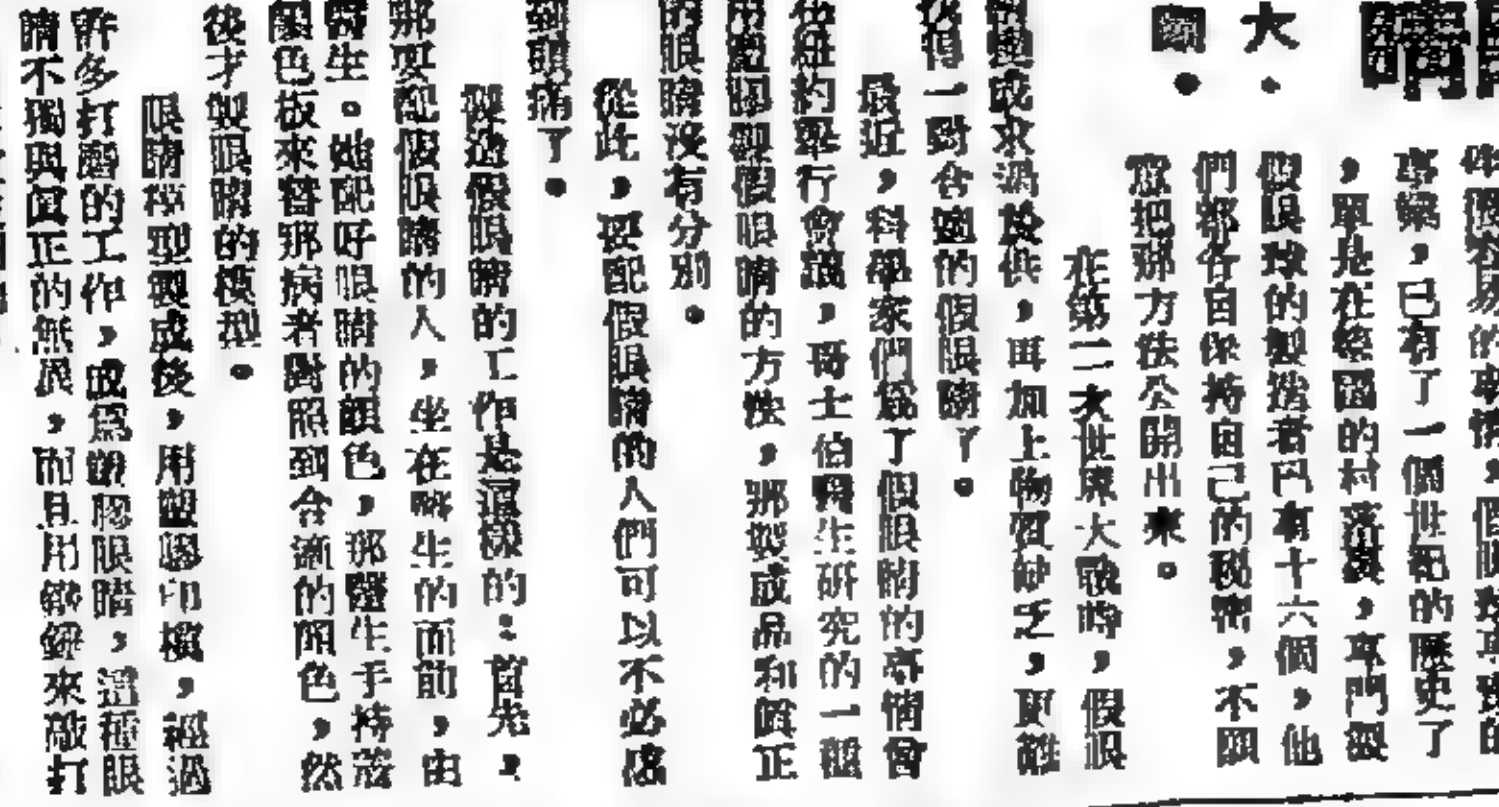 睛
大
顏
件很容易的事情，假眼球專賣的
事業，已有了一個世紀的歷史了
，單是在德國的村落裏，專門製
假眼球的製造者已有十六個，他
們都各自保持自己的秘密，不願
意把那方法公開出來。
在第二次世界大戰時，假眼
變成求過於供，再加上物質缺乏，更難
得一對合適的假眼睛了。
最近，科學家們爲了假眼睛的事情曾
在紐約舉行會議，哥士伯醫生研究的一種
用塑膠製假眼睛的方法，那製成品和眞正
的眼睛沒有分別。
從此，要配假眼睛的人們可以不必感
到頭痛了。
製造假眼睛的工作是這樣的：首先，
那要配假眼睛的人，坐在醫生的面前，由
醫生。她配好眼睛的顏色，那醫生手持着
顏色板來替那病者對照到合適的顏色，然
後才製眼睛的模型。
眼睛模型製成後，用塑膠印模，經過
許多打磨的工作，成爲塑膠眼睛，這種眼
睛不獨與眞正的無異，而且用鐵鎚來敲打